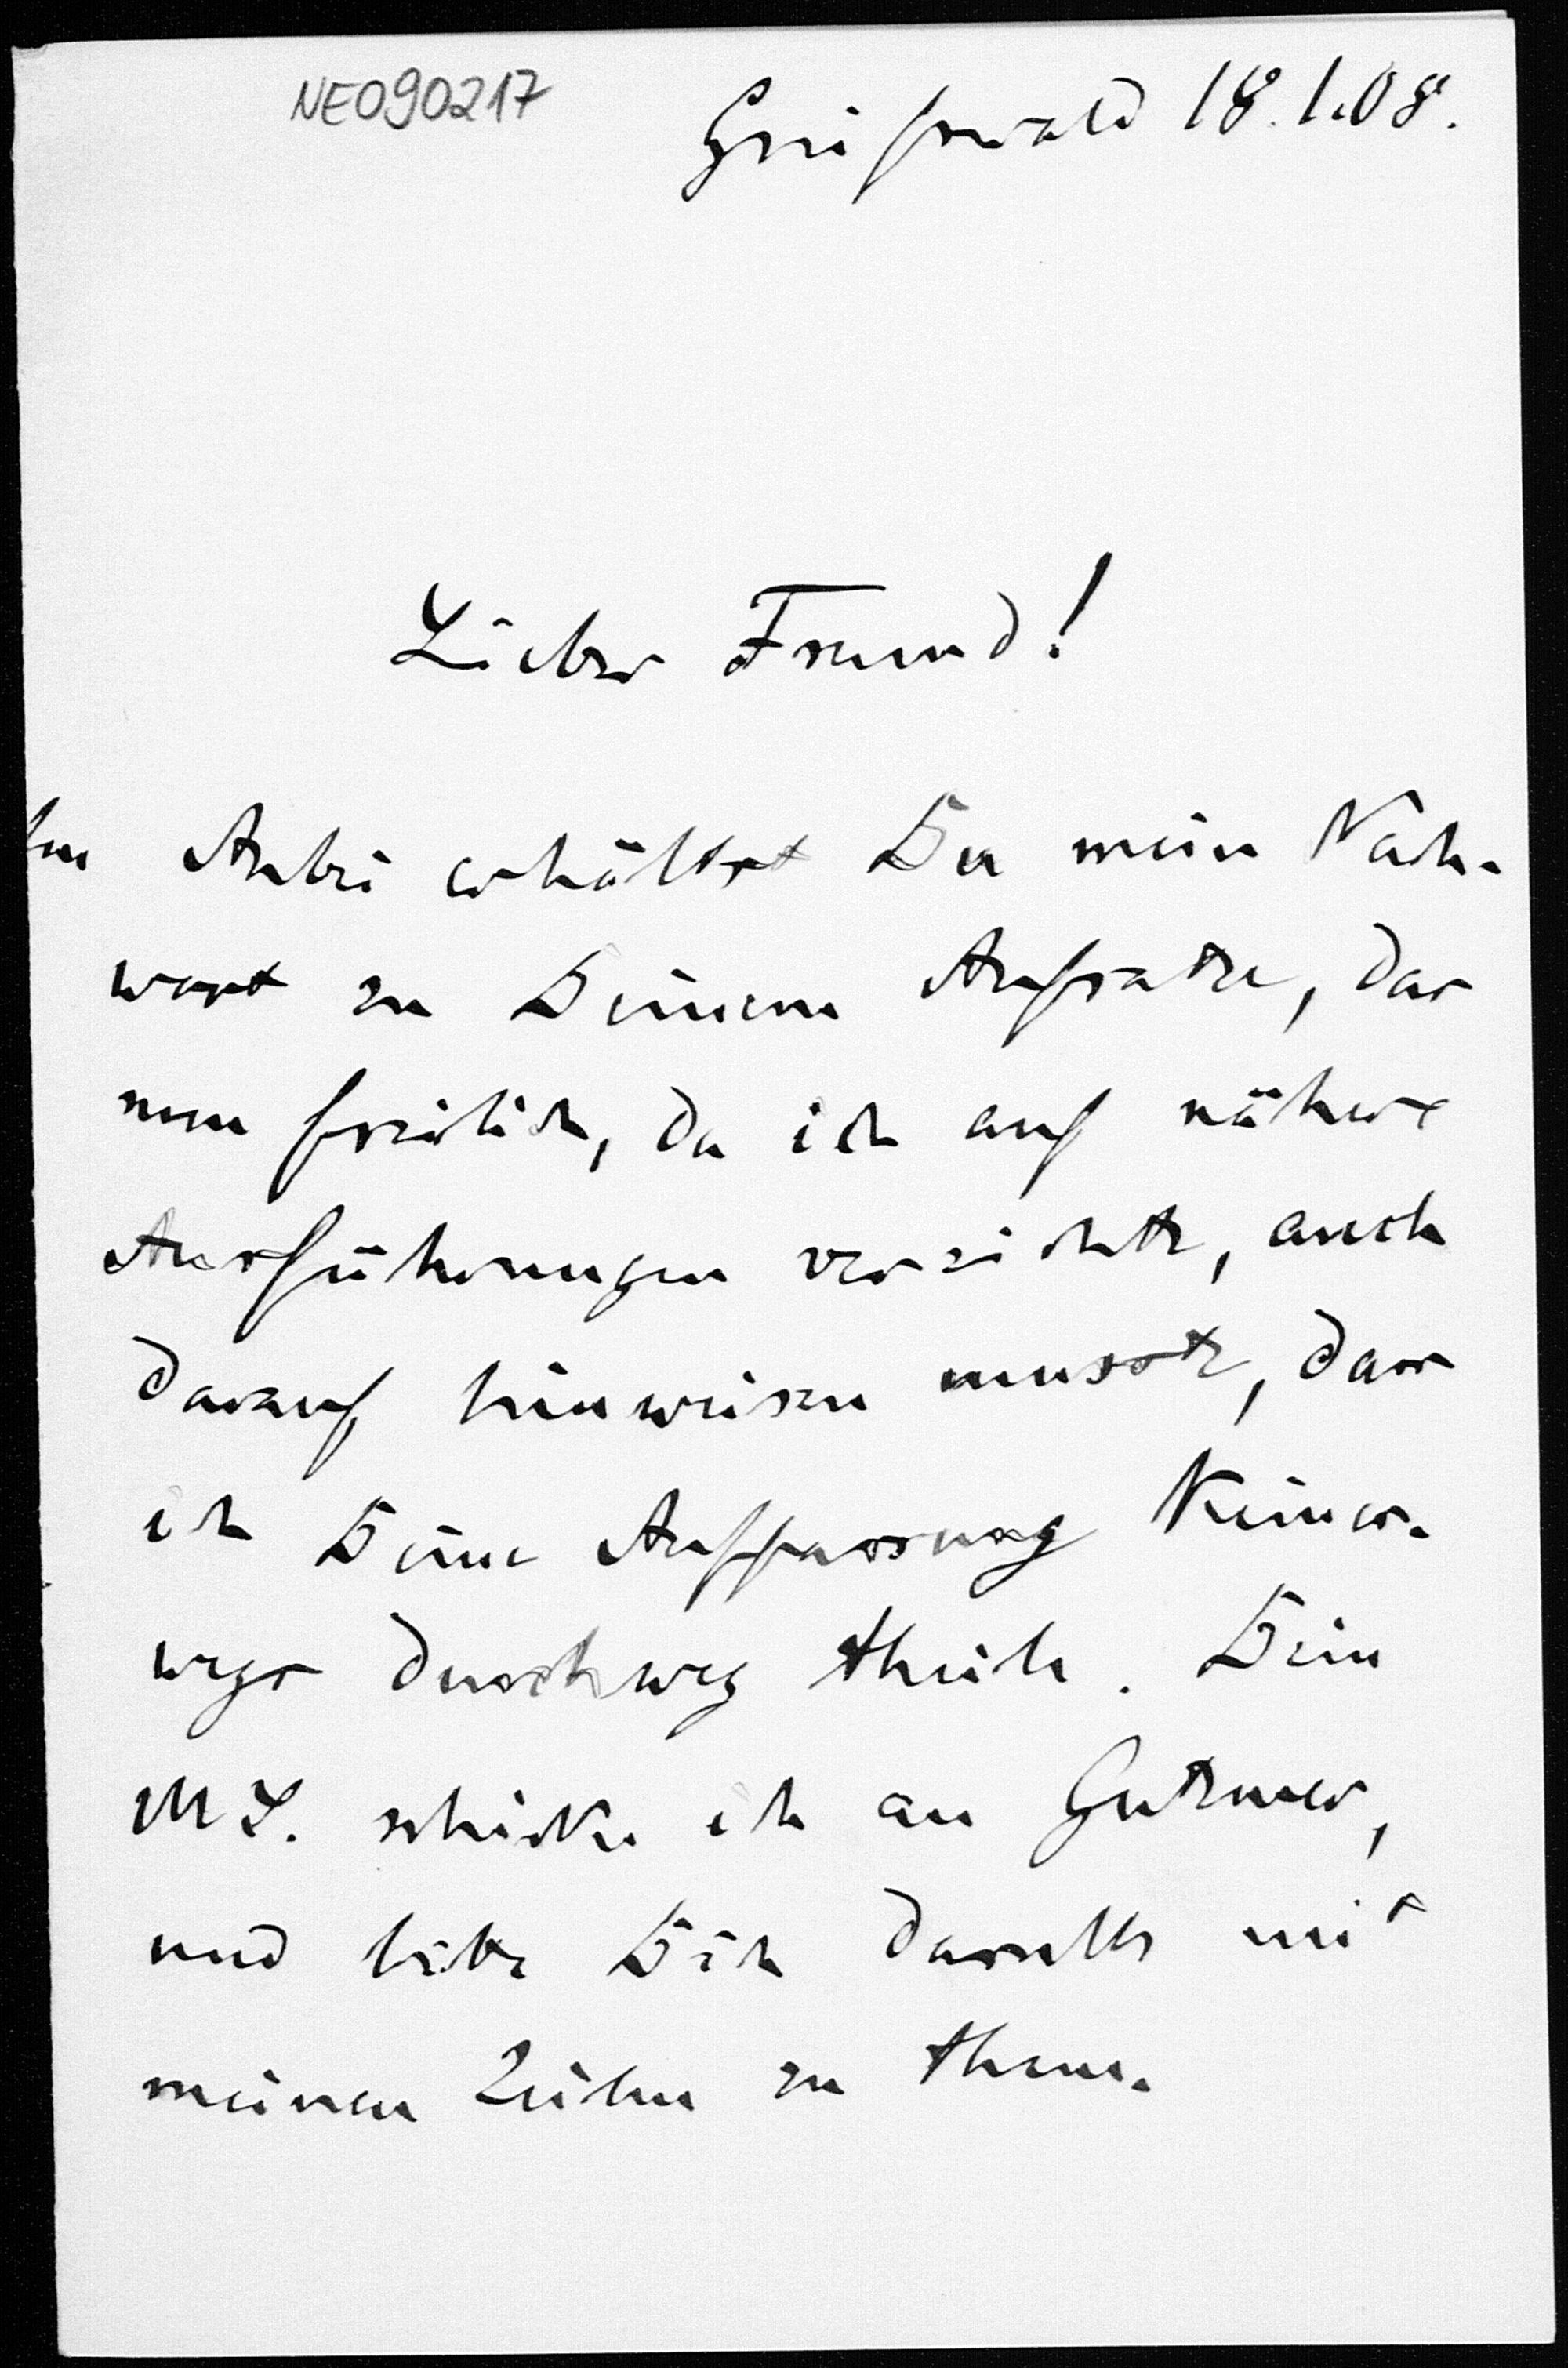 NE090217
Greifswald 18.1.08.
Lieber Freund!
Anbei erhältst Du mein Nach-
wort zu Deinem Aufsatze, das
nun freilich, da ich auf nähere
Ausführungen verzichte, auch
darauf hinweisen musste, dass
ich Deine Auffassung keines-
wegs durchweg theile. Dein
MS. schicke ich an Gutzmer,
und bitte Dich dasselbe mit
meinen Zeilen zu thun.